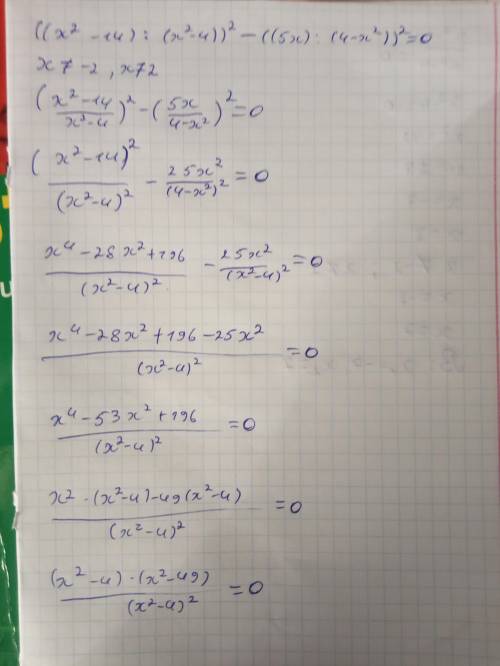 ((x² - 14) : (x² - 4))² - ((5x) : (4 - x²))² = 0
x ≠ -2, x ≠ 2
((x² - 14)/(x² - 4))² - (5x/(4 - x²))² = 0
(x² - 14)²/(x² - 4)² - 25x²/(4 - x²)² = 0
(x⁴ - 28x² + 196)/(x² - 4)² - 25x²/(x² - 4)² = 0
(x⁴ - 28x² + 196 - 25x²)/(x² - 4)² = 0
(x⁴ - 53x² + 196)/(x² - 4)² = 0
(x² · (x² - 4) - 49(x² - 4))/(x² - 4)² = 0
((x² - 4) · (x² - 49))/(x² - 4)² = 0